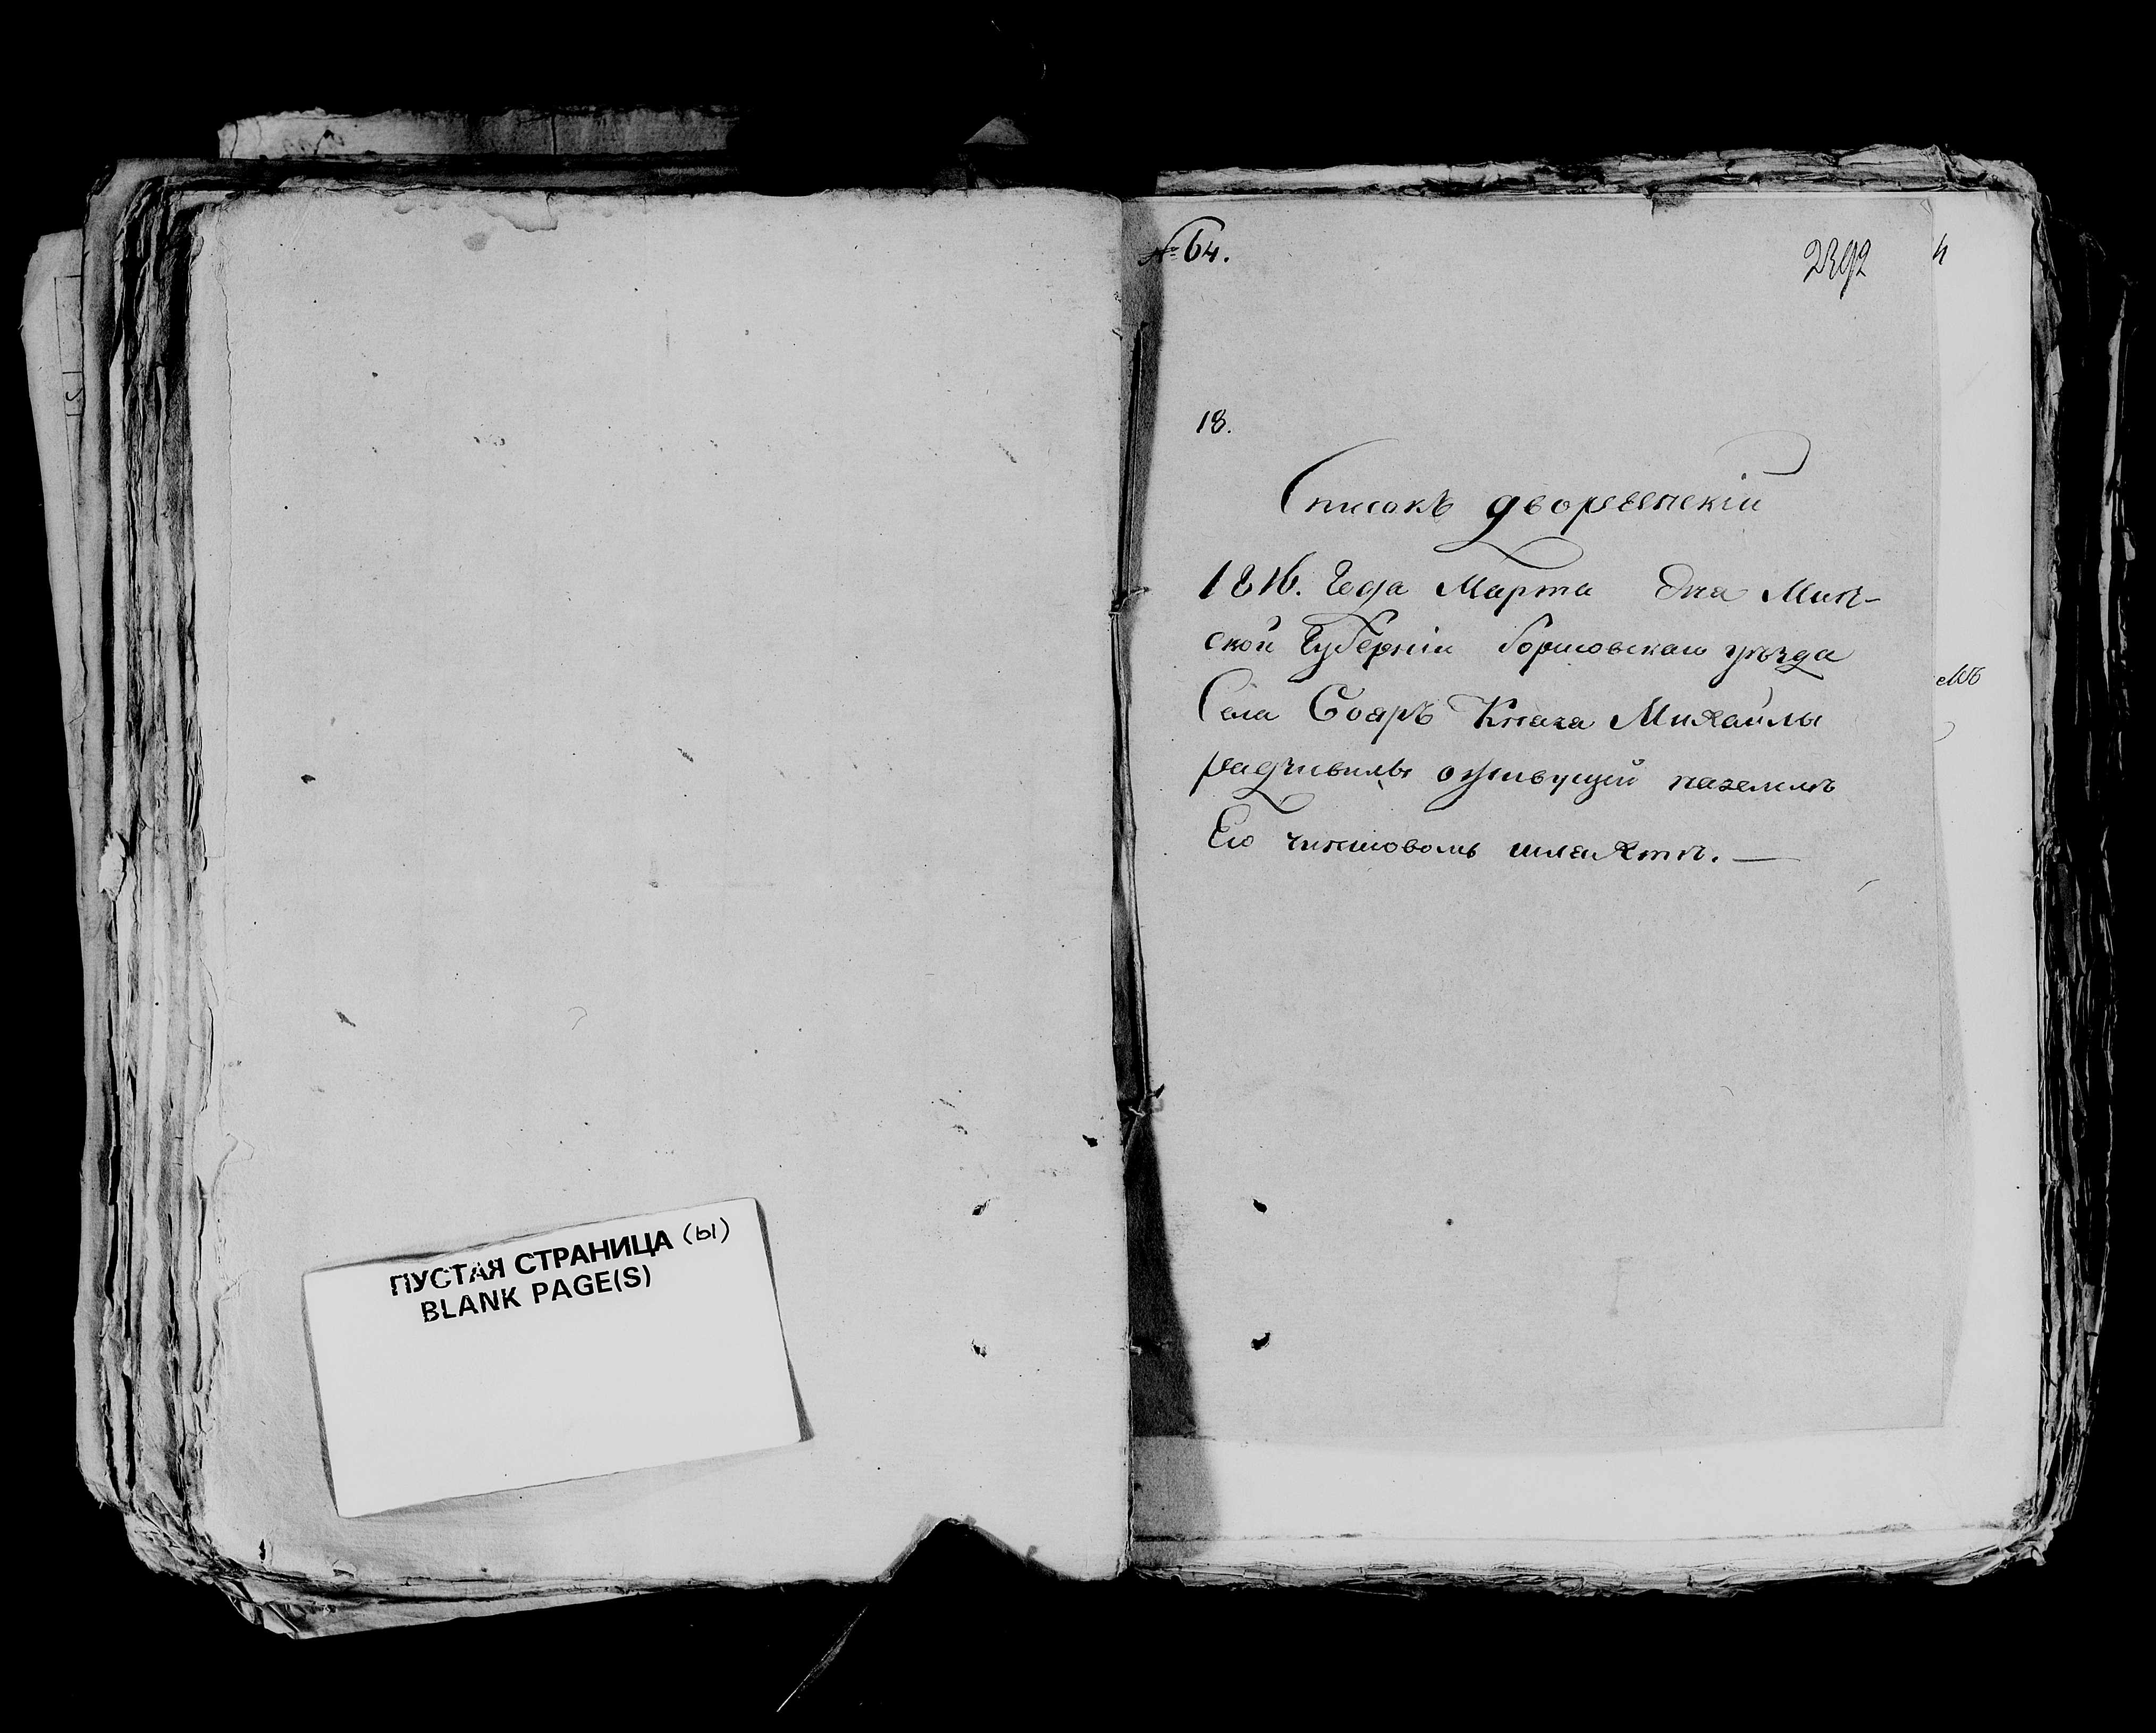 ПУСТАЯ СТРАНИЦА (ы)
BLANK PAGE(S)
№ 64.
2392
18.
Списокъ дворянскiй
1816. Года Марта Дня Мин-
ской Губернiи Борисовскаго уѣзда
Села Бояръ Князя Михайлы
радзивила оживущей наземлѣ
Его чиншовомъ шляхтѣ. —